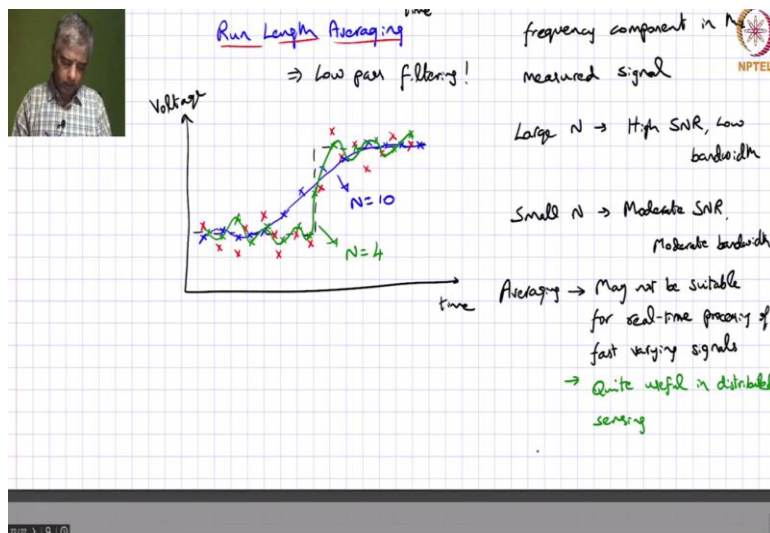 time
Run Length Averaging
⇒ Low pass filtering!
Voltage
N=10
N=4
time
frequency component in
measured signal
Large N → High SNR, Low
bandwidth
Small N → Moderate SNR,
Moderate bandwidth
Averaging → May not be suitable
for real-time processing of
fast varying signals
→ Quite useful in distributed
sensing
NPTEL